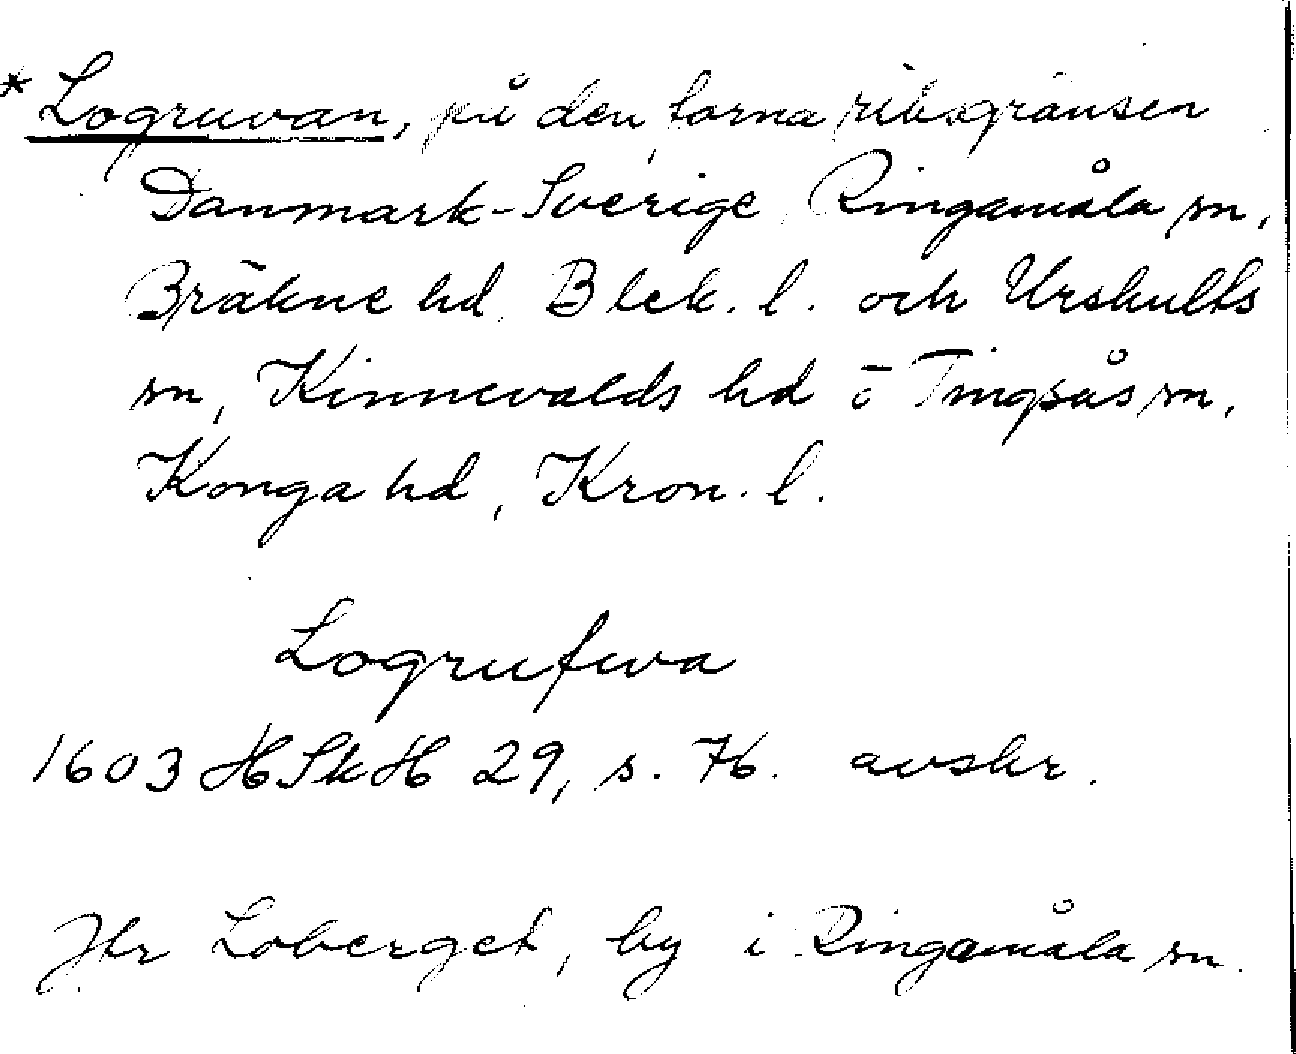 * Logruvan, på den forna riksgränsen
Danmark-Sverige, Ringamåla sn,
Bräkne hd, Blek. l. och Urshults
sn, Kinnevalds hd o Tingsås sn,
Konga hd, Kron. l.
Logrufwa
1603 HSkH 29, s. 76. avskr.
Jfr Loberget, by i Ringamåla sn.